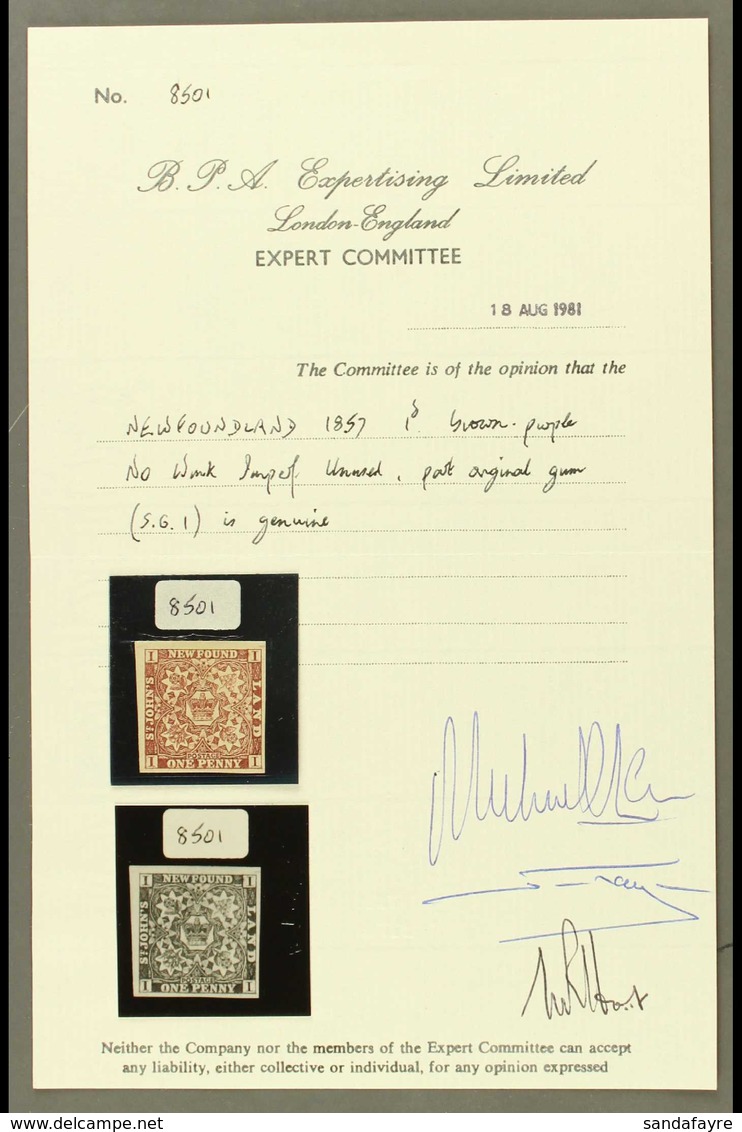 No. 8501
B. P. A. Expertising Limited
London-England
EXPERT COMMITTEE
18 AUG 1981
The Committee is of the opinion that the
NEWFOUNDLAND 1857 1d brown-purple
No Wmk Imperf. Unused, part original gum
(S.G. 1) is genuine
8501
1 NEW FOUND 1
ST JOHN'S
LAND
POSTAGE
1 ONE PENNY 1
8501
1 NEW FOUND 1
ST JOHN'S
LAND
POSTAGE
1 ONE PENNY 1
Neither the Company nor the members of the Expert Committee can accept
any liability, either collective or individual, for any opinion expressed
delcampe.net
sandafayre